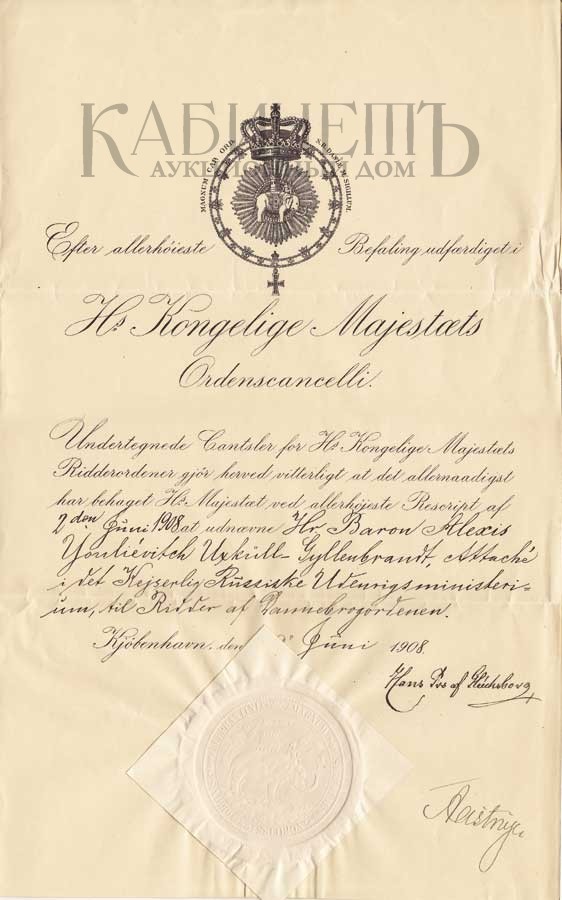 КАБИНЕТЪ
АУКЦИОННЫЙ ДОМ
MAGNUM CAP. ORD. S. R. DANIÆ M. SIGILLUM
Efter allerhöieste Befaling udfærdiget i
Hs Kongelige Majestæts
Ordenscancelli.
Undertegnede Cantsler for Hs Kongelige Majestæts
Ridderordener gjör herved vitterligt at det allernaadigst
har behaget Hs Majestæt ved allerhöjeste Rescript af
2den Juni 1908 at udnævne Hr. Baron Alexis
Youliévitch Uxküll-Gyllenbrandt, Attaché
i det Kejserlig Russiske Udenrigsministeri-
um, til Ridder af Dannebrogordenen.
Kjöbenhavn, den Juni 1908.
Hans Prs af Glücksborg